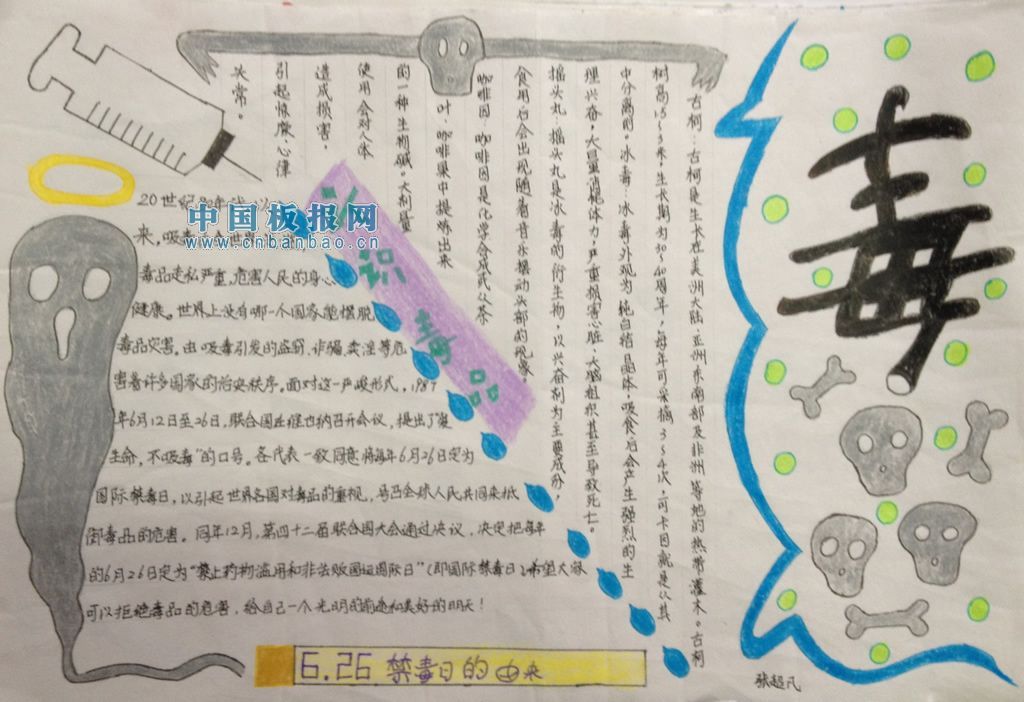 毒
古柯:古柯是生长在美洲大陆、亚洲东南部及非洲等地的热带灌木。古柯
树高1.5~3米,生长期为30~40周年,每年可采摘3~4次,可卡因就是从其
中分离的。冰毒:冰毒外观为纯白结晶体,吸食后会产生强烈的生
理兴奋,大量消耗体力,严重损害心脏、大脑组织甚至导致死亡。
摇头丸:摇头丸是冰毒的衍生物,以兴奋剂为主要成分,
食用后会出现随着音乐摆动头部的现象。
咖啡因:咖啡因是化学合成或从茶
叶、咖啡果中提炼出来
的一种生物碱。大剂量
使用会对人体
造成损害,
引起惊厥、心律
失常。
识毒品
中国板报网
www.cnbanbao.cn
20世纪80年代以
来,吸毒
毒品走私严重,危害人民的身心
健康。世界上没有哪一个国家能摆脱
毒品灾害。由吸毒引发的盗窃、诈骗、卖淫等危
害着许多国家的治安秩序。面对这一严峻形式,1987
年6月12日至26日,联合国在维也纳召开会议,提出了"爱
生命,不吸毒"的口号。各代表一致同意将每年6月26日定为
国际禁毒日,以引起世界各国对毒品的重视,号召全球人民共同来抵
御毒品的危害。同年12月,第四十二届联合国大会通过决议,决定把每年
的6月26日定为"禁止药物滥用和非法贩运国际日"(即国际禁毒日)希望大家
可以拒绝毒品的危害,给自己一个光明的前途和美好的明天!
6.26 禁毒日的由来
张超凡